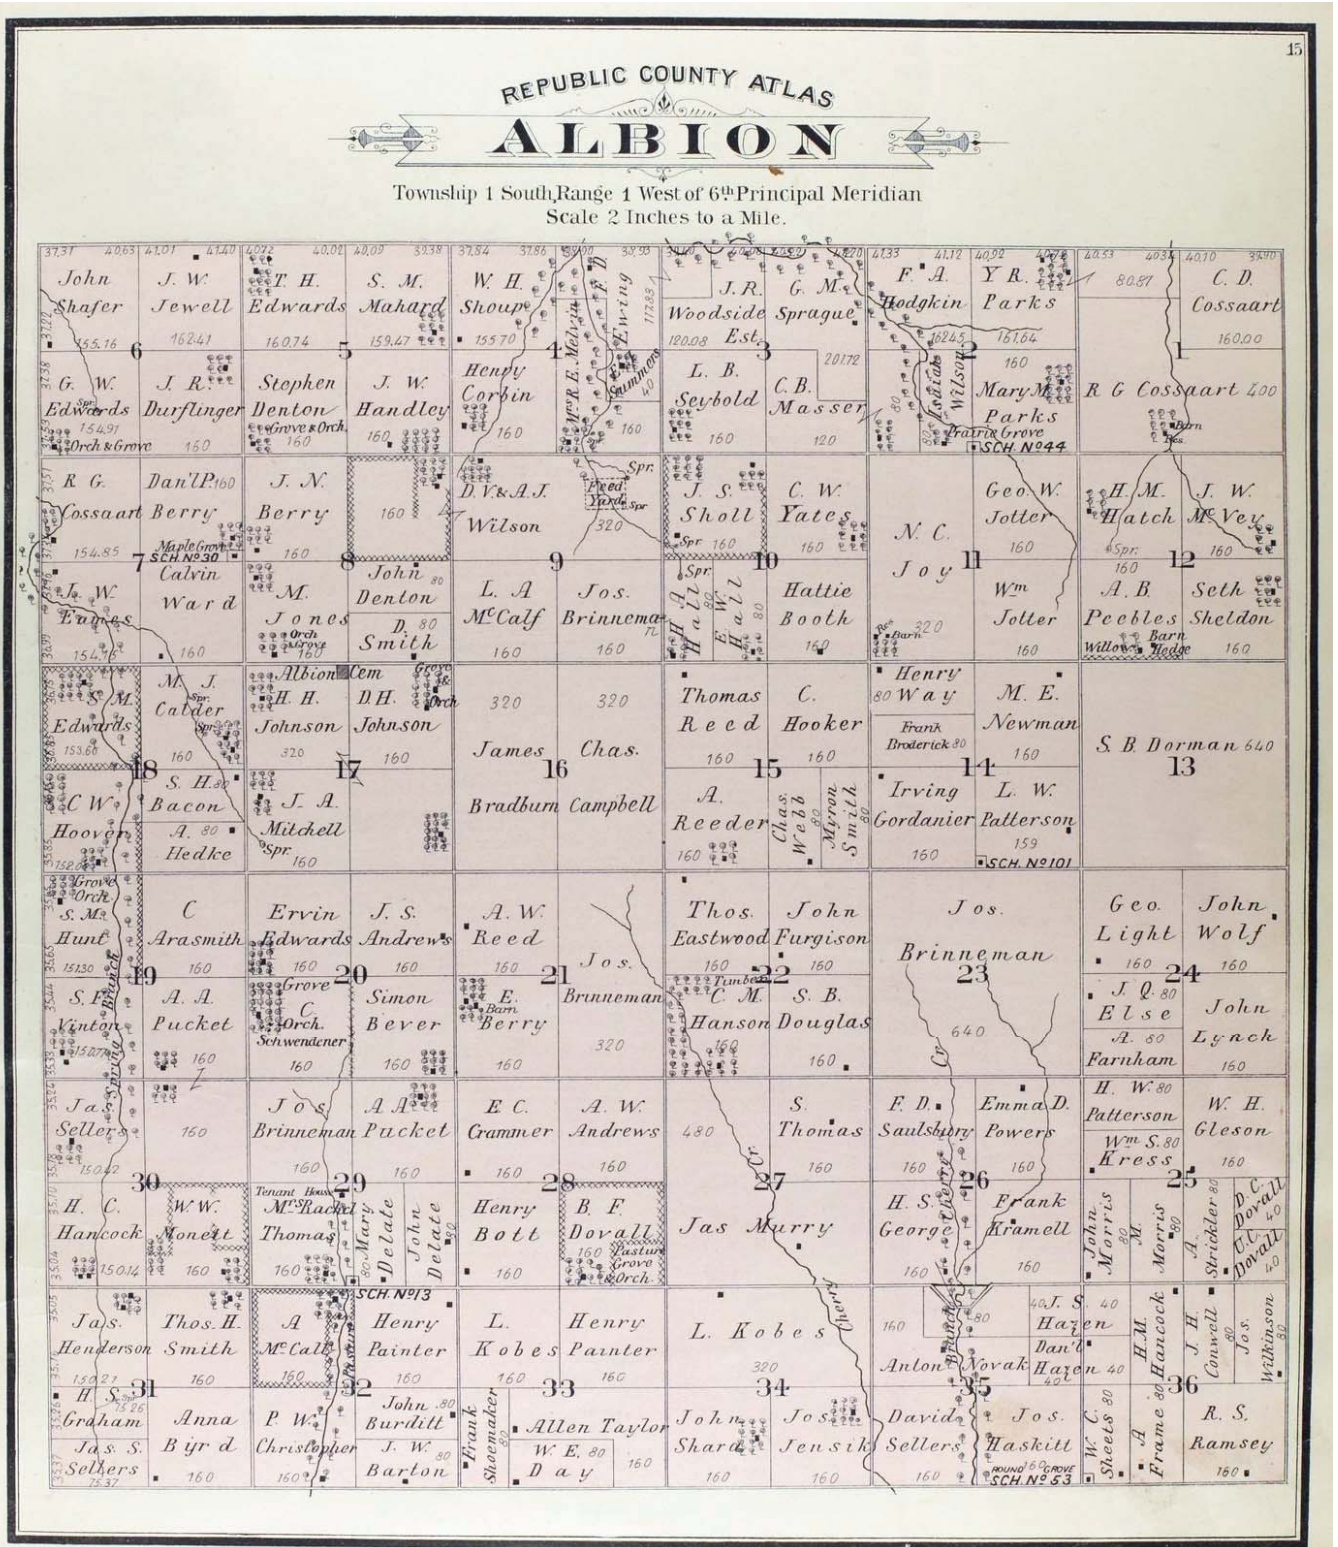 15
REPUBLIC COUNTY ATLAS
ALBION
Township 1 South, Range 1 West of 6th Principal Meridian
Scale 2 Inches to a Mile.
37.31 40.63 41.01 41.40 40.72 40.02 40.09 39.38 37.84 37.86 41.33 41.12 40.92 40.53 40.10 39.90
John Shafer 155.16
J. W. Jewell 162.41
6
T. H. Edwards 160.74
S. M. Mahard 159.47
5
W. H. Shoup 155.70
Mrs R. E. Melvin
F. D. Ewing 117.88
4
J. R. Woodside Est. 120.08
G. M. Sprague
3
F. A. Hodgkin 162.45
Y R. Parks 161.64
2
80.87
C. D. Cossaart 160.00
1
G. W. Edwards Spr. 154.91
Orch & Grove
J. R. Durflinger 160
Stephen Denton
Grove & Orch. 160
J. W. Handley 160
Henry Corbin 160
Summers 40
160
L. B. Seybold 160
C. B. Masser 120
201.72
Isaiah Wilson 80
80
160 Mary M. Parks
Prairie Grove
SCH. No 44
R G Cossaart 400
Barn
Res.
R G. Cossaart 154.85
Dan'l P. Berry 160
Maple Grove
SCH. No 30
7
J. N. Berry 160
160
8
D. V. & A. J. Wilson 320
Feed Yard
Spr.
Spr
9
J. S. Sholl
Spr 160
C. W. Yates 160
10
N. C. Joy 320
Res
Barn
Geo. W. Jotter 160
11
H. M. Hatch
Spr. 160
J. W. McVey 160
12
J. W. Eames 154.75
Calvin Ward 160
M. Jones
Orch & Grove 160
John Denton 80
D. Smith 80
L. A McCalf 160
Jos. Brinneman 160
Spr.
H A Hall 80
E. W. Hall 80
Hattie Booth 160
Wm Jotter 160
A. B. Peebles
Willow
Barn
Hedge
Seth Sheldon 160
S. M. Edwards 153.66
M. J. Calder 160
Spr.
Spr.
18
Albion Cem
H. H. Johnson 320
D. H. Johnson 160
Grove & Orch
17
320 320
James Chas.
16
Bradburn Campbell
Thomas Reed 160
C. Hooker 160
15
Henry Way 80
Frank Broderick 80
M. E. Newman 160
14
S. B. Dorman 640
13
C W. Hoover
S. H. Bacon 80
A. Hedke 80
J. A. Mitchell
Spr. 160
A. Reeder 160
Chas. Webb 80
Myron Smith 80
Irving Gordanier 160
L. W. Patterson 159
SCH. No 101
Grove
Orch.
S. M. Hunt 151.30
C Arasmith 160
19
Ervin Edwards 160
J. S. Andrews 160
20
A. W. Reed 160
21
Jos. Brinneman 320
Thos. Eastwood 160
John Furgison 160
22
Jos. Brinneman
23
640
Cr
Geo. Light 160
John Wolf 160
24
S. F. Vinton 150.77
Spring Branch
A. A. Pucket 160
Grove
C
Orch.
Schwendener 160
Simon Bever 160
E. Berry 160
Barn
Timber
C. M. Hanson 160
S. B. Douglas 160
J. Q. Else 80
A. Farnham 80
John Lynch 160
Jas. Sellers 150.42
160
30
Jos. Brinneman 160
A A Pucket 160
29
E C. Grammer 160
A. W. Andrews 160
28
480
S. Thomas 160
27
Cr
F. D. Saulsbury 160
Emma D. Powers 160
26
H. W. Patterson 80
Wm S. Kress 80
W. H. Gleson 160
25
H. C. Hancock 150.14
W. W. Monett 160
Tenant House
Mrs Rachel Thomas 160
Mary Delate 80
John Delate 80
Henry Bott 160
B. F. Dovall 160
Pasture
Grove
& Orch.
Jas Murry
Cherry
H. S. George 160
Frank Kramell 160
John Morris 80
M. Morris 80
A Strickler 80
D. C. Dovall 40
U. C. Dovall 40
SCH. No 13
Jas. Henderson 150.21
Thos. H. Smith 160
31
A McCall 160
Pasture
Henry Painter 160
32
L. Kobes
Henry Painter 160
33
L. Kobes 320
34
Cherry
160
Anton Novak 80
Branch
J. S. Hazen 40
40
Dan'l Hazen 40
40
35
H. M. Hancock
J. H. Conwell 80
Jos. Wilkinson 80
36
H. S. Graham 75.26
Jas. S. Sellers 75.37
Anna Byrd 160
P. W. Christopher 160
John Burditt 80
J. W. Barton 80
Frank Shoemaker 80
Allen Taylor 160
W. E. Day 80
John Shara 160
Jos. Jensik 160
David Sellers 160
Jos. Haskitt 160
ROUND GROVE
SCH. No 53
W. C. Sheets 80
A Frame 80
R. S. Ramsey 160